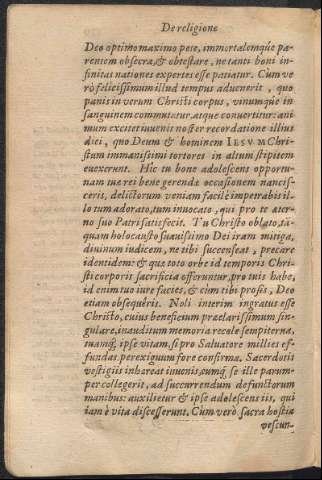 De religione
Deo optimo maximo pete, immortalemqúe pa-
rentem obsecra, & obtestare, ne tanti boni in-
finitas nationes expertes esse patiatur. Cùm ve
rò felicissimum illud tempus aduenerit, quo
panis in verum Christi corpus, vinumqúe in
sanguinem commutatur, atque conuertitur: ani
mum excitet iuuenis noster recordatione illius
diei, quo Deum & hominem IESVM Chri-
stum immanissimi tortores in altum stipitem
euexerunt. Hic tu bone adolescens opportu-
nam tuæ rei bene gerendæ occasionem nancis-
ceris, delictorum veniam facilè impetrabis il-
lo tum adorato, tum inuocato, qui pro te æter-
no suo Patri satisfecit. Tu Christo oblato, tā-
quam holocausto suauissimo Dei iram mitiga,
diuinum iudicem, ne tibi succenseat, precare
identidem: & quæ toto orbe id temporis Chri-
sti corporis sacrificia offeruntur, pro tuis habe,
id enim tuo iure facies, & cùm tibi prosis, Deo
etiam obsequêris. Noli interim ingratus esse
Christo, cuius beneficium præclarissimum sin-
gulare, inauditum memoria recole sempiterna,
tuamq́; ipse vitam, si pro Saluatore millies ef-
fundas, perexiguum fore confirma. Sacerdotis
vestigiis inhæreat iuuenis, cumq́; se ille parum-
per collegerit, ad succurrendum defunctorum
manibus: auxilietur & ipse adolescens iis, qui
iam è vita discesserunt. Cùm verò sacra hostia
vescun-